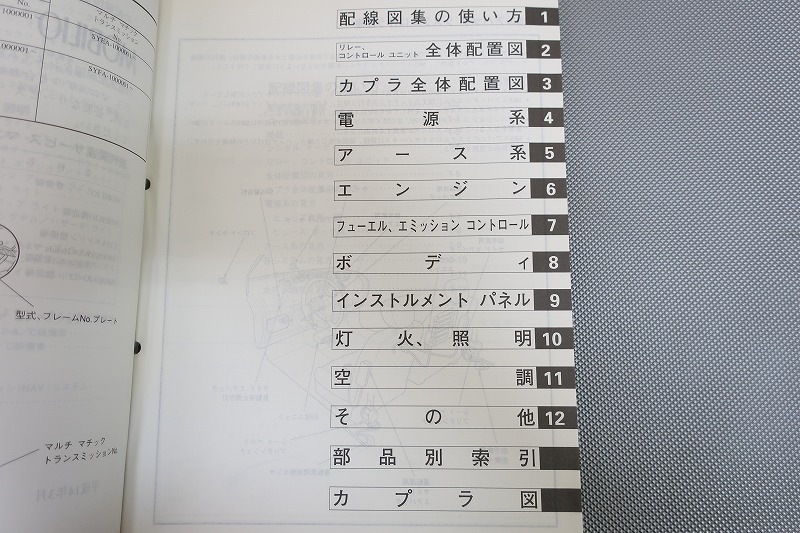 No.
1000001～
1000001～
マルチ マチック
トランスミッション
No.
SYFA-1000001～
SYFA-1000001～
型式、フレームNo.プレート
マルチ マチック
トランスミッションNo.
配線図集の使い方 1
リレー、
コントロール ユニット 全体配置図 2
カプラ全体配置図 3
電源系 4
アース系 5
エンジン 6
フューエル、エミッション コントロール 7
ボディ 8
インストルメント パネル 9
灯火、照明 10
空調 11
その他 12
部品別索引
カプラ図